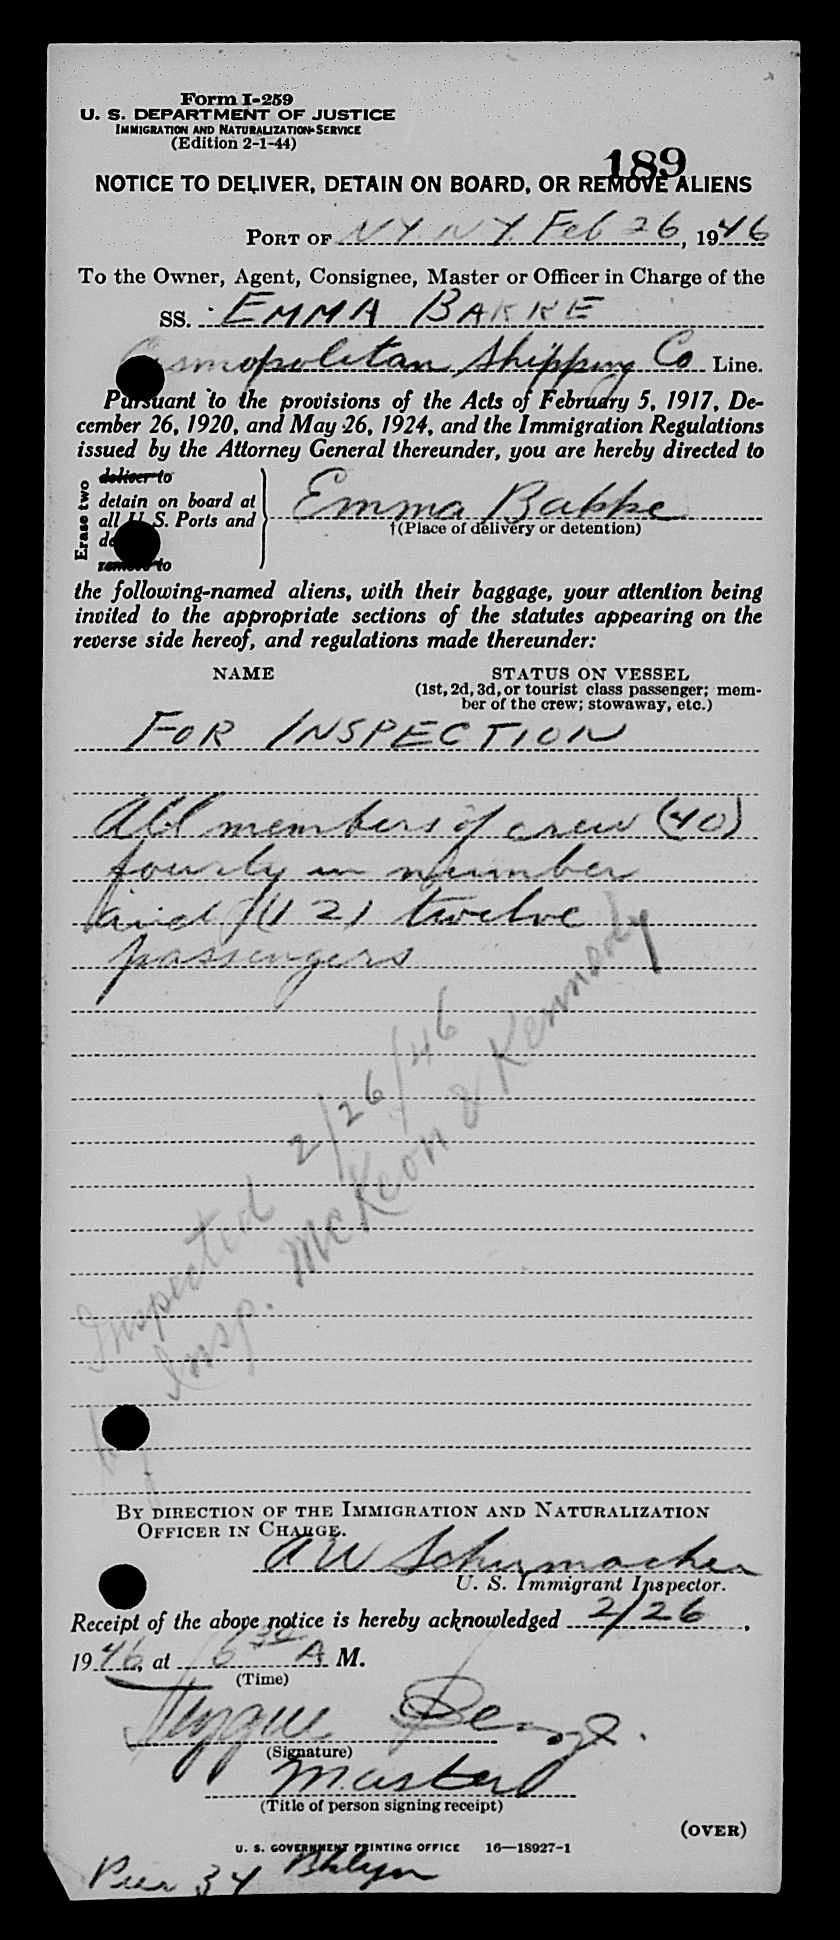 Form I-259
U. S. DEPARTMENT OF JUSTICE
IMMIGRATION AND NATURALIZATION SERVICE
(Edition 2-1-44)
189
NOTICE TO DELIVER, DETAIN ON BOARD, OR REMOVE ALIENS
PORT OF N.Y. N.Y. Feb 26, 1946
To the Owner, Agent, Consignee, Master or Officer in Charge of the
SS. EMMA BAKKE
Cosmopolitan Shipping Co Line.
Pursuant to the provisions of the Acts of February 5, 1917, De-
cember 26, 1920, and May 26, 1924, and the Immigration Regulations
issued by the Attorney General thereunder, you are hereby directed to
Erase two
deliver to
detain on board at
all U. S. Ports and
remove to
Emma Bakke
†(Place of delivery or detention)
the following-named aliens, with their baggage, your attention being
invited to the appropriate sections of the statutes appearing on the
reverse side hereof, and regulations made thereunder:
NAME STATUS ON VESSEL
(1st, 2d, 3d, or tourist class passenger; mem-
ber of the crew; stowaway, etc.)
FOR INSPECTION
All members of crew (40)
fourty in number
and (12) twelve
passengers
Inspected 2/26/46
by Insp. McKeon & Kennedy
BY DIRECTION OF THE IMMIGRATION AND NATURALIZATION
OFFICER IN CHARGE.
A W Schumacher
U. S. Immigrant Inspector.
Receipt of the above notice is hereby acknowledged 2/26,
1946, at 6 30 A M.
(Time)
(Signature)
Master
(Title of person signing receipt)
(OVER)
U. S. GOVERNMENT PRINTING OFFICE 16—18927-1
Pier 34 Bklyn